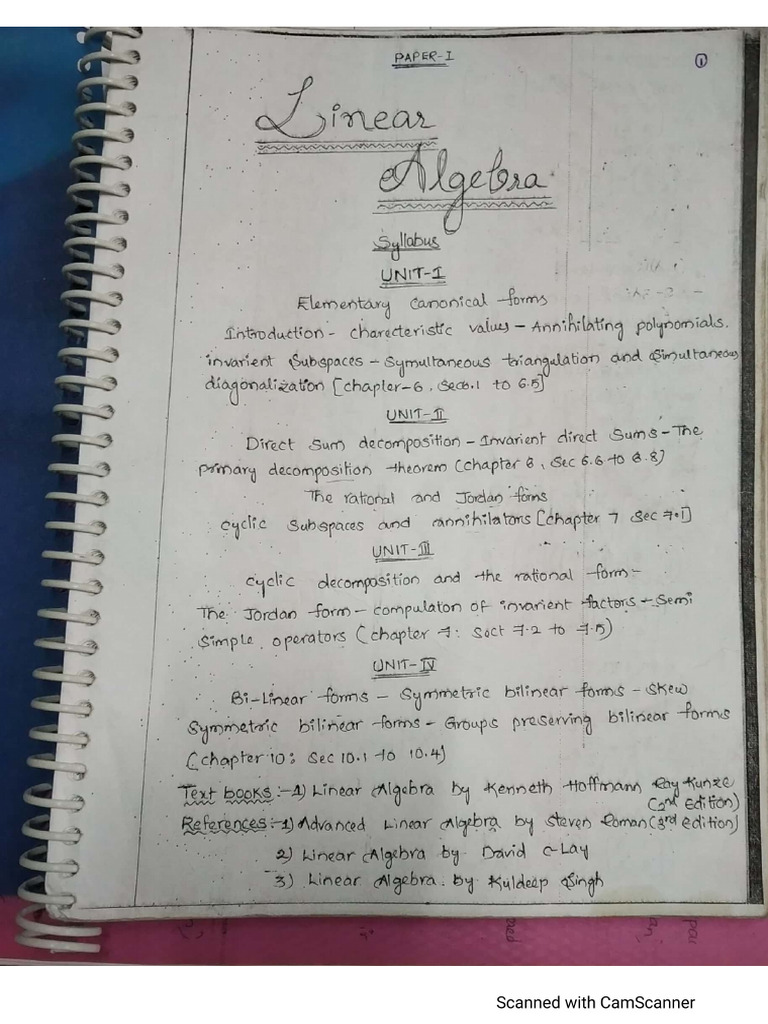 PAPER-I
1
Linear
Algebra
Syllabus
UNIT-I
Elementary canonical forms
Introduction - charecteristic values - Annihilating polynomials.
invarient Subspaces - Symultaneous triangulation and Simultaneous
diagonalization [chapler-6, Sec6.1 to 6.5]
UNIT-II
Direct Sum decomposition - Invarient direct Sums - The
primary decomposition theorem (chapter 6, Sec 6.6 to 6.8)
The rational and Jordan forms
cyclic Subspaces and annihilators [chapter 7 Sec 7.1]
UNIT-III
cyclic decomposition and the rational form-
The Jordan form - compulaton of invarient factors - Semi
Simple operators (chapter 7: Soct 7.2 to 7.5)
UNIT-IV
Bi-Linear forms - Symmetric bilinear forms - Skew
Symmetric bilinear forms - Groups preserving bilinear forms
(chapter 10: Sec 10.1 to 10.4)
Text books:-1) Linear Algebra by Kenneth Hoffmann Ray Kunze
(2nd Edition)
References:-1) Advanced Linear Algebra by Steven Roman (3rd edition)
2) Linear Algebra by David C-Lay
3) Linear Algebra. by Kuldeep Singh
Scanned with CamScanner